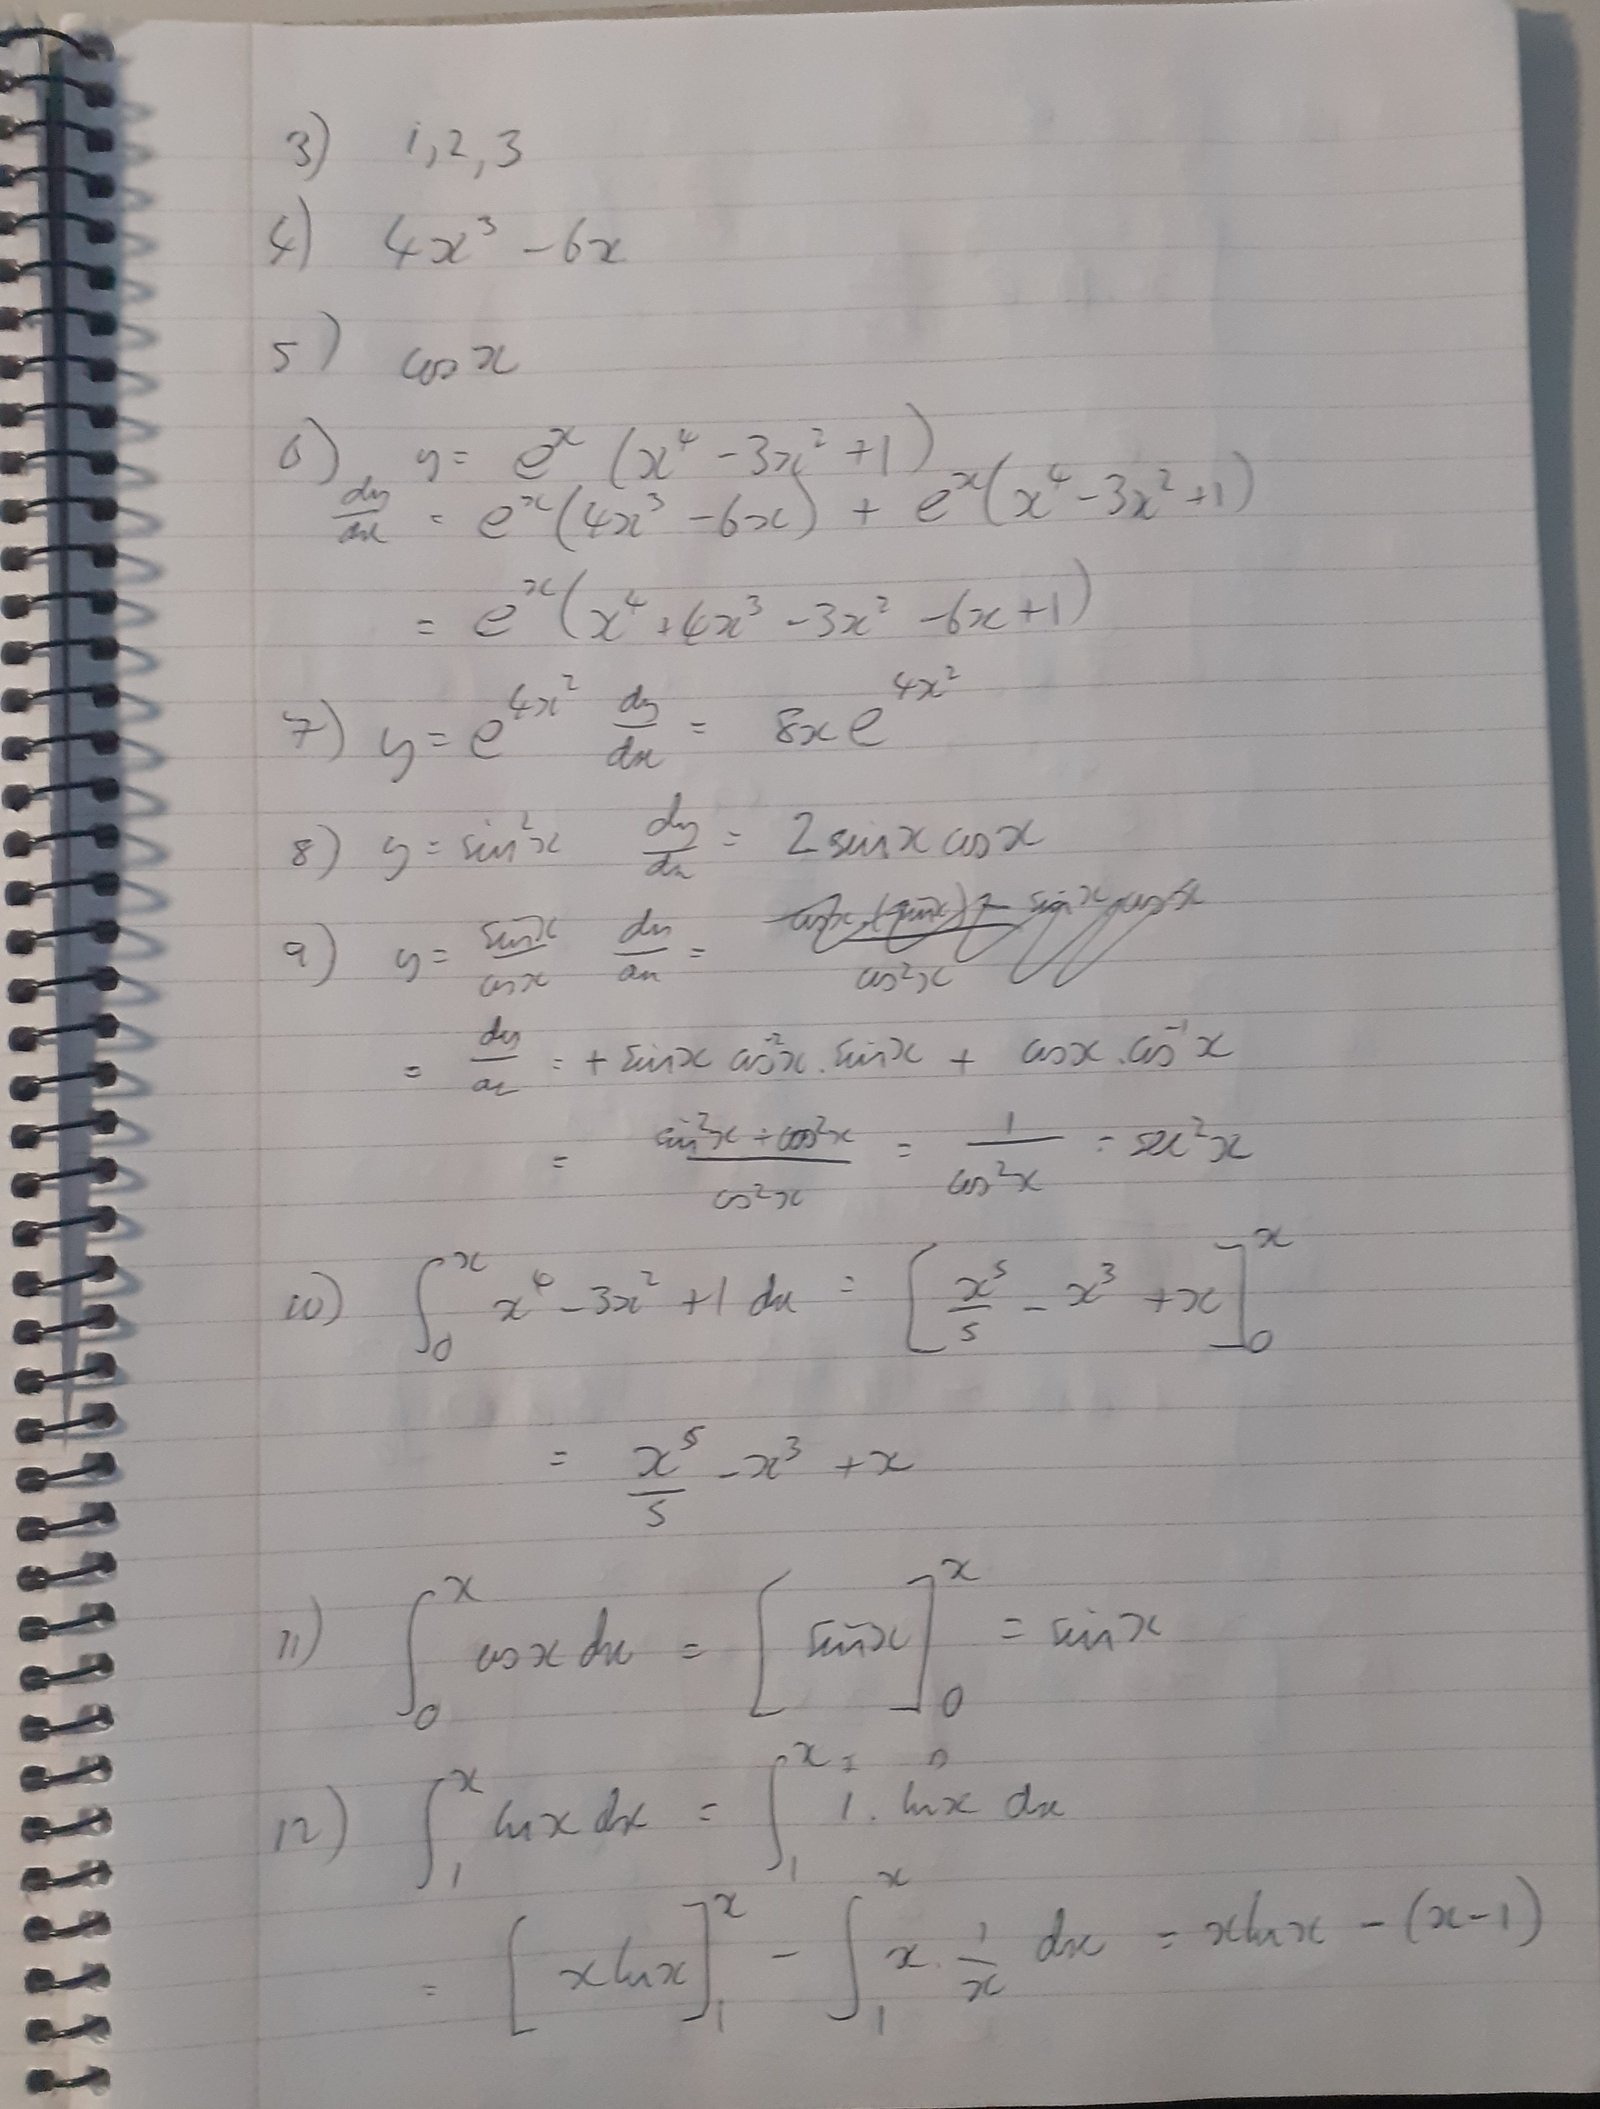 3) 1, 2, 3
4) 4x³ - 6x
5) cos x
6) y = eˣ (x⁴ - 3x² + 1)
dy/dx = eˣ(4x³ - 6x) + eˣ(x⁴ - 3x² + 1)
= eˣ(x⁴ + 4x³ - 3x² - 6x + 1)
7) y = e^(4x²) dy/dx = 8x e^(4x²)
8) y = sin²x dy/dx = 2 sin x cos x
9) y = sin x / cos x dy/dx = / cos²x
= dy/dx = + sin x cos⁻²x . sin x + cos x . cos⁻¹x
= (sin²x + cos²x) / cos²x = 1 / cos²x = sec²x
10) ∫₀ˣ x⁴ - 3x² + 1 dx = [x⁵/5 - x³ + x]₀ˣ
= x⁵/5 - x³ + x
11) ∫₀ˣ cos x dx = [sin x]₀ˣ = sin x
12) ∫₁ˣ ln x dx = ∫₁ˣ 1 . ln x dx
= [x ln x]₁ˣ - ∫₁ˣ x . 1/x dx = x ln x - (x - 1)